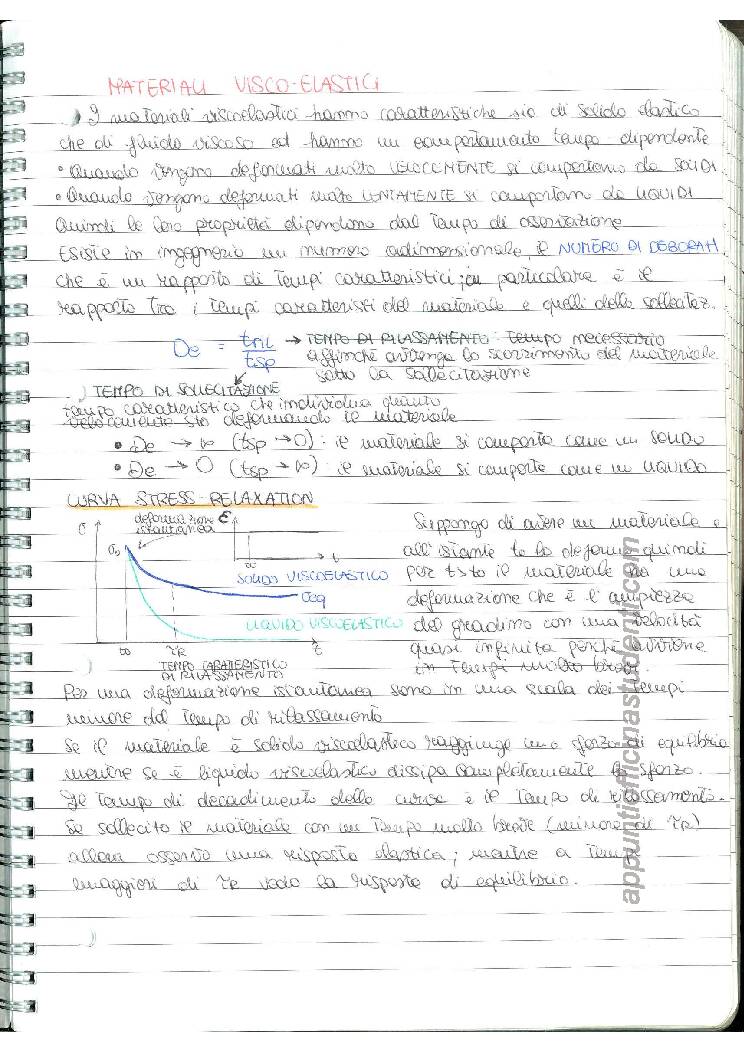 MATERIALI VISCO-ELASTICI
I materiali viscoelastici hanno caratteristiche sia di solido elastico
che di fluido viscoso ed hanno un comportamento tempo-dipendente
• Quando vengono deformati molto VELOCEMENTE si comportano da SOLIDI
• Quando vengono deformati molto LENTAMENTE si comportano da LIQUIDI
Quindi le loro proprietà dipendono dal tempo di osservazione
Esiste in ingegneria un numero adimensionale, il NUMERO DI DEBORAH
che è un rapporto di tempi caratteristici; in particolare è il
rapporto tra i tempi caratteristi del materiale e quelli della sollecitaz.
De = tril / tsp → TEMPO DI RILASSAMENTO: tempo necessario
affinchè avvenga lo scorrimento del materiale
sotto la sollecitazione
TEMPO DI SOLLECITAZIONE
tempo caratteristico che individua quanto
velocemente sto deformando il materiale
• De → ∞ (tsp → 0): il materiale si comporta come un SOLIDO
• De → 0 (tsp → ∞): il materiale si comporta come un LIQUIDO
CURVA STRESS-RELAXATION
deformazione
istantanea
σ
σ0
ε
t0
t
SOLIDO VISCOELASTICO
σeq
LIQUIDO VISCOELASTICO
t0
τR
t
TEMPO CARATTERISTICO
DI RILASSAMENTO
Suppongo di avere un materiale e
all'istante t0 lo deformo quindi
per t>t0 il materiale ha una
deformazione che è l'ampiezza
del gradino con una velocità
quasi infinita perchè avviene
in tempi molto brevi.
Per una deformazione istantanea sono in una scala dei tempi
minore del tempo di rilassamento
Se il materiale è solido viscoelastico raggiunge uno sforzo di equilibrio
mentre se è liquido viscoelastico dissipa completamente lo sforzo.
Il tempo di decadimento della curva è il tempo di rilassamento.
Se sollecito il materiale con un tempo molto breve (minore di τR)
allora osservo una risposta elastica; mentre a tempi
maggiori di τR vedo la risposta di equilibrio.
appuntiofficinastudenti.com